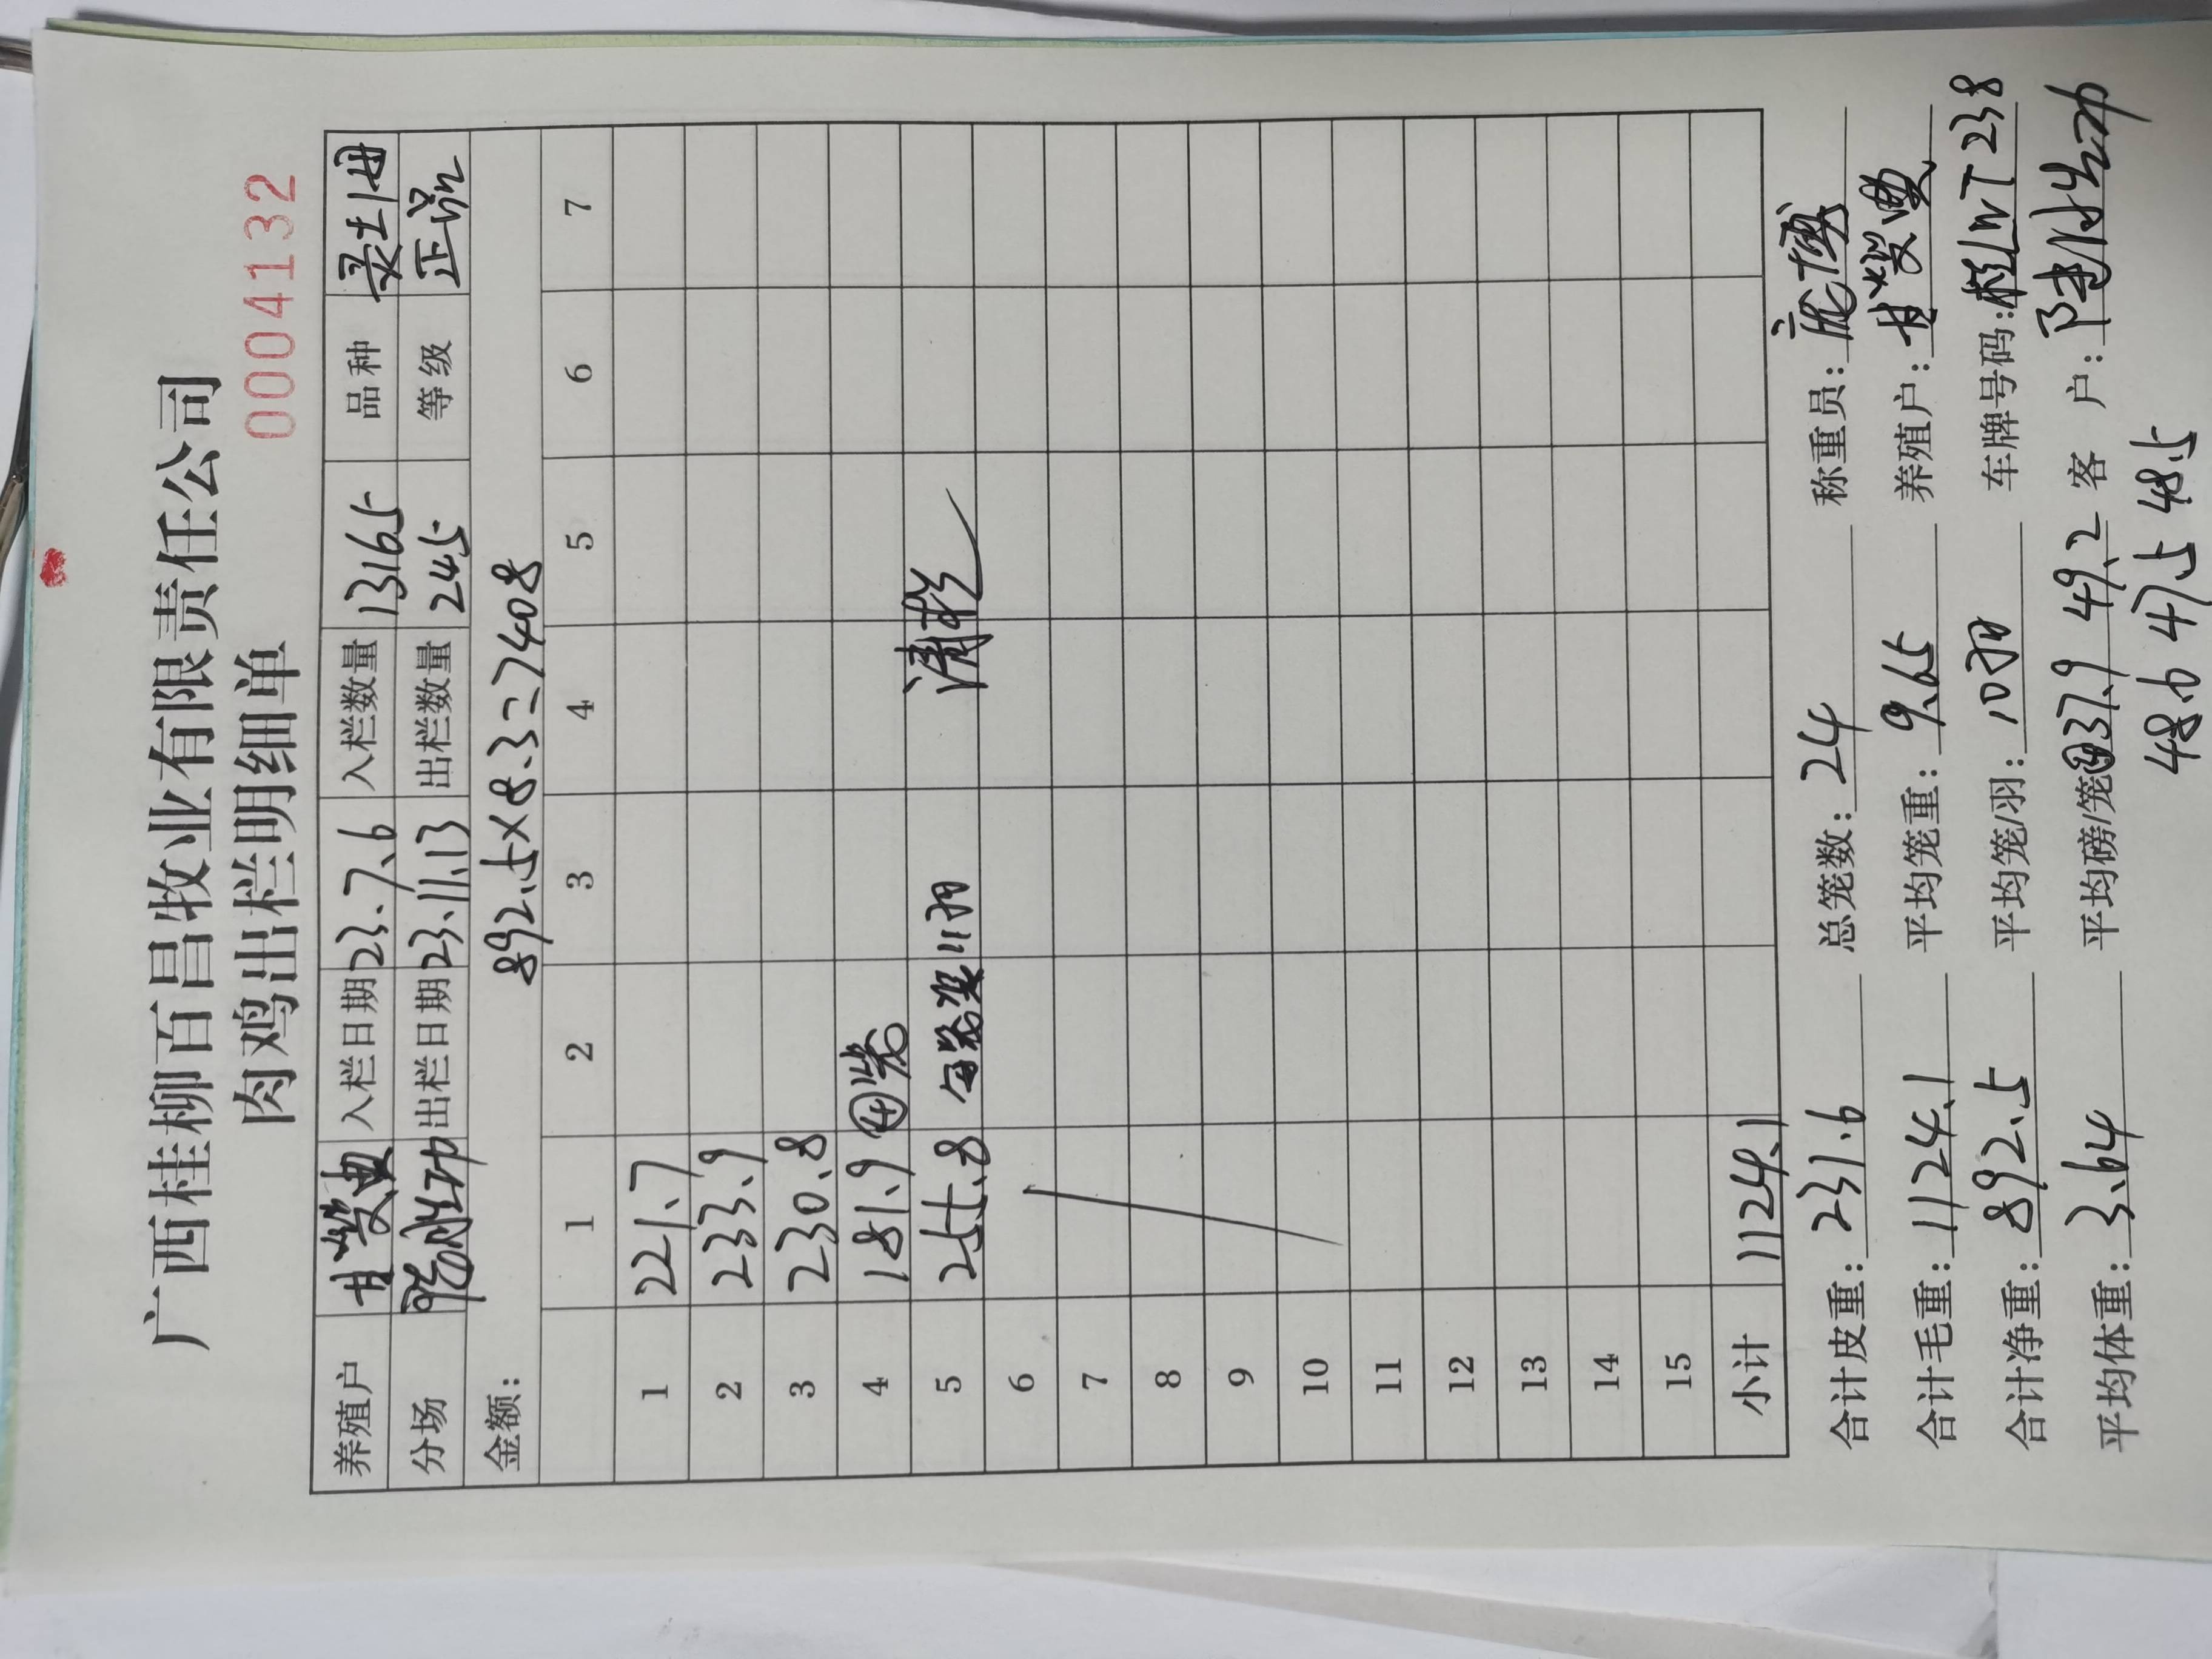 广西桂柳百昌牧业有限责任公司
肉鸡出栏明细单
0004132
养殖户 入栏日期 23.7.6 入栏数量 13165 品种
分场 出栏日期 23.11.13 出栏数量 245 等级 正品
金额: 892.5×8.3=7408
1 2 3 4 5 6 7
1 221.7
2 233.9
3 230.8
4 181.9 ④笼
5 255.8 11羽
6
7
8
9
10
11
12
13
14
15
小计 1124.1
合计皮重: 231.6 总笼数: 24 称重员:
合计毛重: 1124.1 平均笼重: 9.65 养殖户:
合计净重: 892.5 平均笼/羽: 10羽 车牌号码: 238
平均体重: 3.64 平均磅/笼 37.9 49.2 客 户:
48.6 47.5 48.5